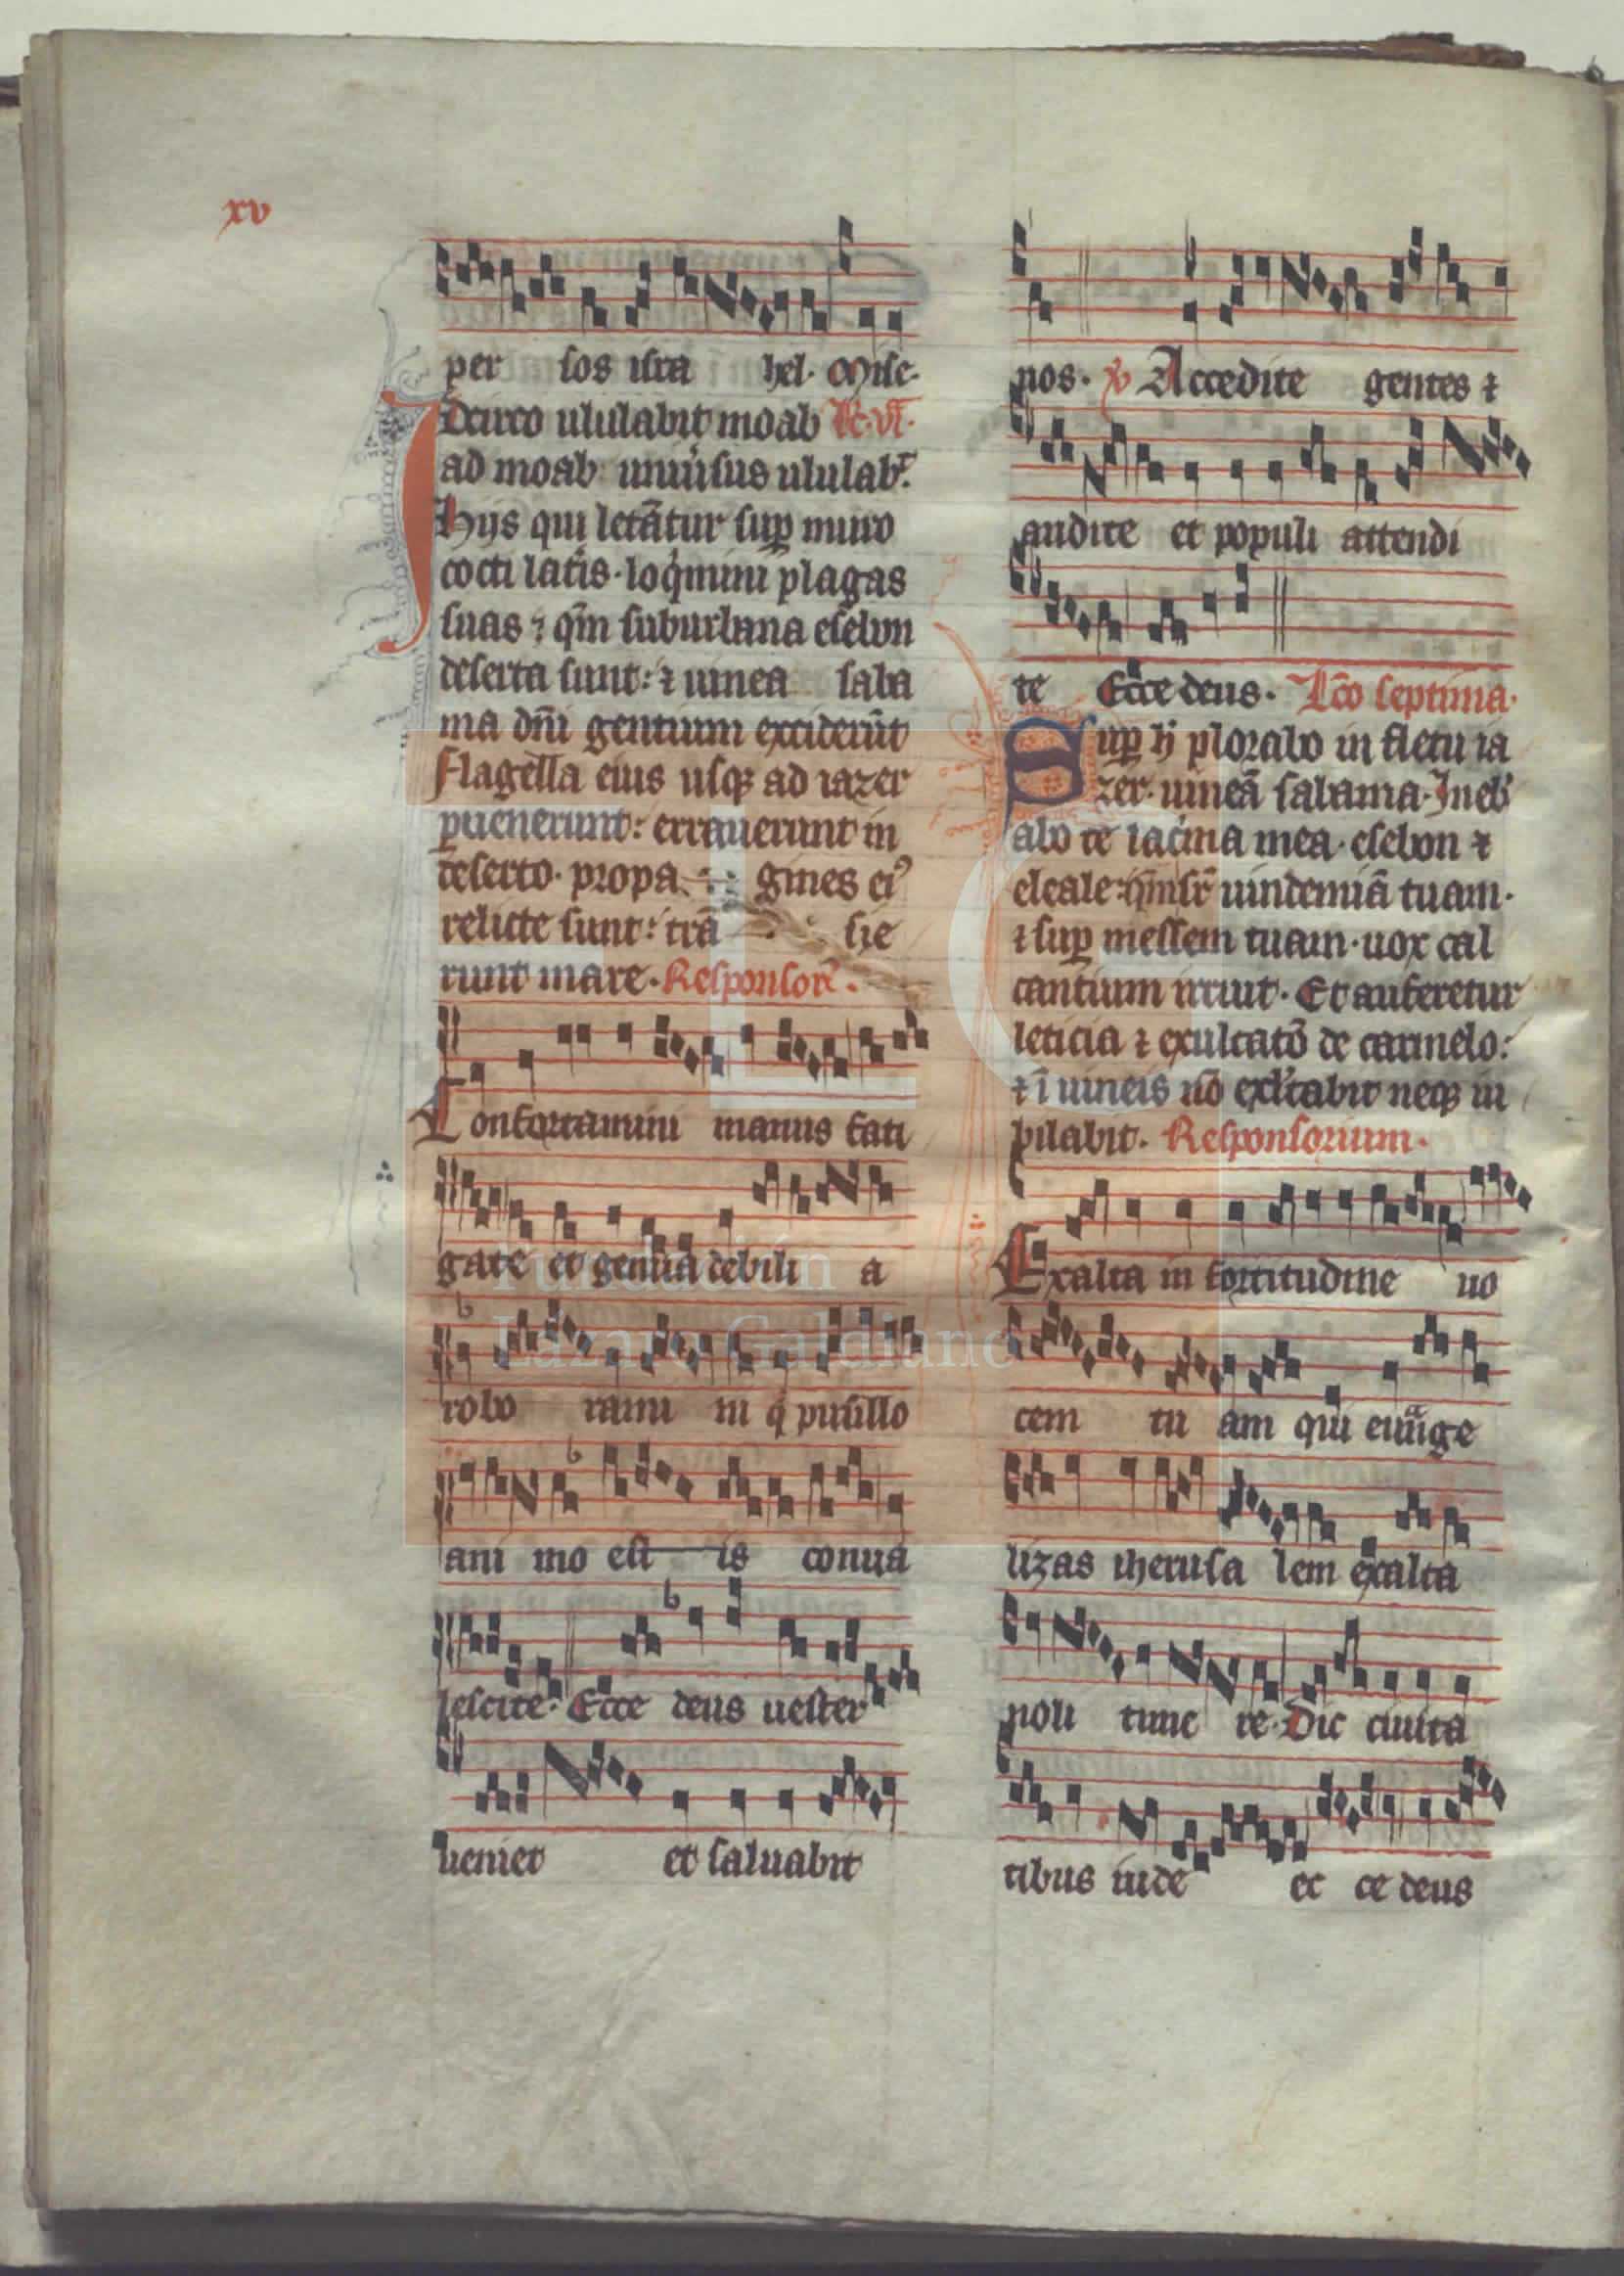 xv
per sos isra hel. Mise.
Idcirco ululabit moab R. vi.
ad moab uniusus ululab.
Hijs qui letātur sup muro
cocti latis. loqmini plagas
suas: qm̄ suburbana esebon
deserta sunt: ⁊ uinea saba
ma dn̄i gentium exciderūt
flagella eius usq; ad iazer
puenerunt: errauerunt in
deserto. propa gines ei⁹
relicte sunt: trā sie
runt mare. Responsor.
Confortamini manus fati
gate et genua debili a
robo rami ni q pusillo
ani mo est is conua
lescite. Ecce deus uester
ueniet et saluabit
nos. V Accedite gentes ⁊
audite et populi attendi
te Ecce deus. Lc̄o septima.
Sup h plorabo in fletu ia
zer. uineā sabama. Ineb
abo te lacima mea. esebon ⁊
eleale: qm̄ sr uindemiā tuam.
⁊ sup messem tuam. uox cal
cantium irruit. Et auferetur
leticia ⁊ exultatō de carmelo:
⁊ ī uineis nō exltabit neq; iu
bilabit. Responsorium.
Exalta in fortitudine uo
cem tu am qui euuāge
lizas iherusa lem exalta
noli time re. Dic ciuita
tibus iude ec ce deus
Fundación
Lázaro Galdiano